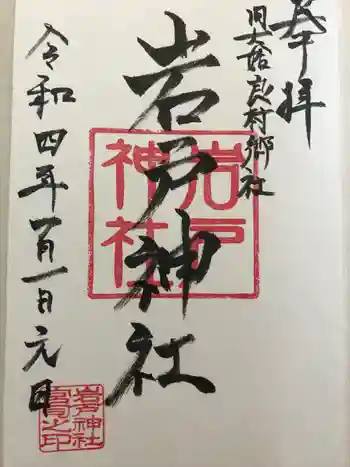 奉拝
旧大姶良村郷社
岩戸神社
岩戸
神社
令和四年一月一日元旦
岩戸神社
宮司之印